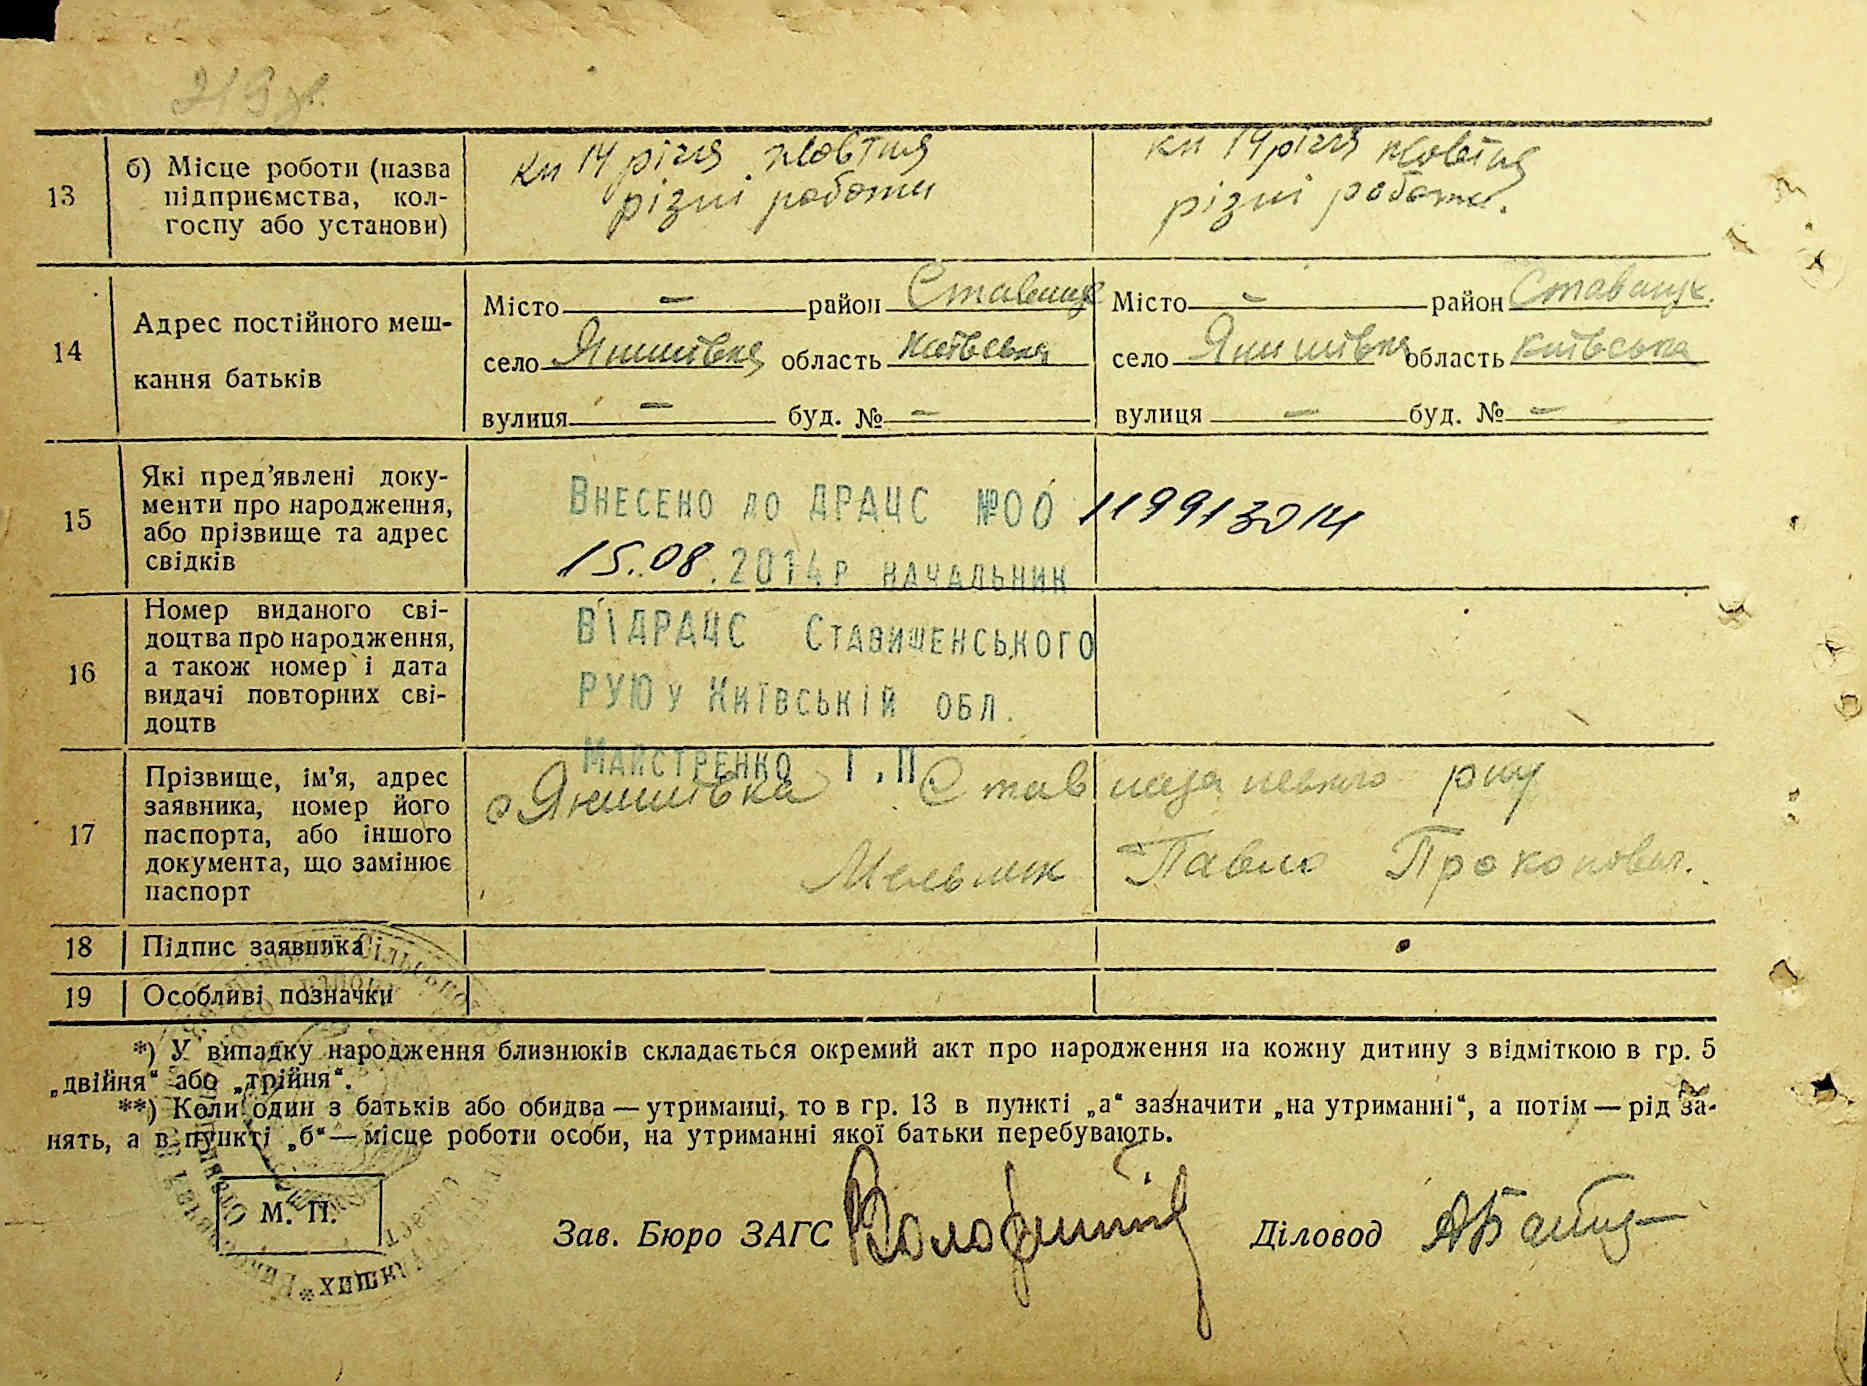 219 зв.
13
б) Місце роботи (назва
підприємства, кол-
госпу або установи)
кп 14 річчя жовтня
різні роботи
кп 14 річчя жовтня
різні роботи.
14
Адрес постійного меш-
кання батьків
Місто — район Ставищ
село Янишівка область Київська
вулиця — буд. № —
Місто — район Ставищ.
село Янишівка область Київська
вулиця — буд. № —
15
Які пред’явлені доку-
менти про народження,
або прізвище та адрес
свідків
Внесено до ДРАЦС №00 119913014
15.08.2014р начальник
16
Номер виданого сві-
доцтва про народження,
а також номер і дата
видачі повторних сві-
доцтв
ВДРАЦС Ставищенського
РУЮ у Київській обл.
Майстренко Г.П.
17
Прізвище, ім’я, адрес
заявника, номер його
паспорта, або іншого
документа, що замінює
паспорт
с Янишівка Ставищанського р-ну
Мельник Павло Прокопович.
18
Підпис заявника
19
Особливі позначки
*) У випадку народження близнюків складається окремий акт про народження на кожну дитину з відміткою в гр. 5
„двійня“ або „трійня“.
**) Коли один з батьків або обидва — утриманці, то в гр. 13 в пункті „а“ зазначити „на утриманні“, а потім — рід за-
нять, а в пункті „б“ — місце роботи особи, на утриманні якої батьки перебувають.
М. П.
Зав. Бюро ЗАГС
Діловод